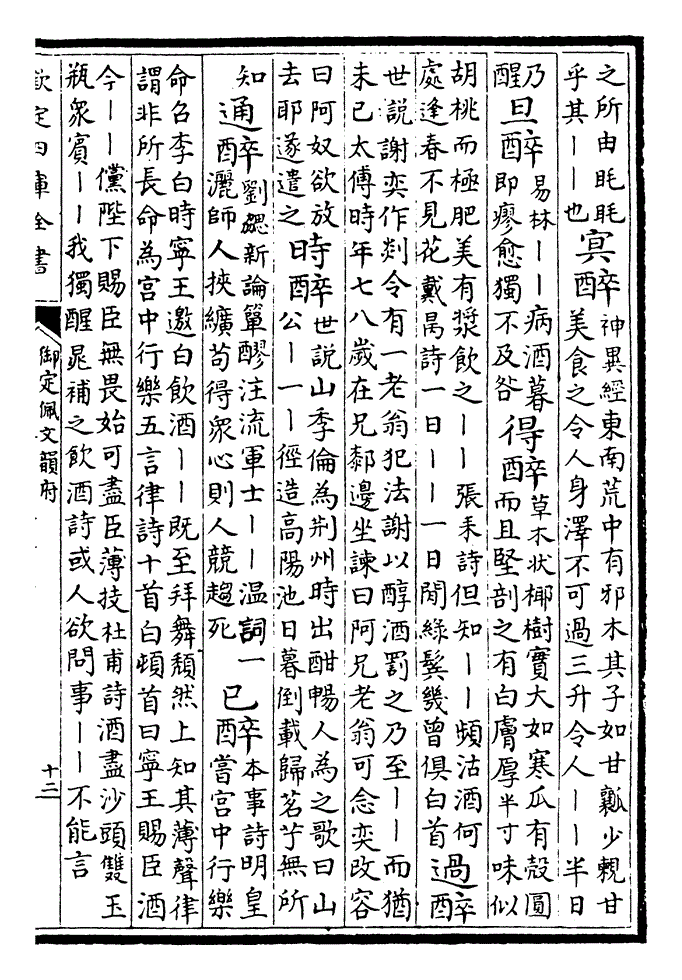 之所由眊眊
乎其——也
冥醉
神異經東南荒中有邪木其子如甘瓤少覩甘
美食之令人身澤不可過三升令人——半日
乃
醒
旦醉
易林——病酒暮
即瘳愈獨不及咎
得醉
草木狀椰樹實大如寒瓜有殼圓
而且堅剖之有白膚厚半寸味似
胡桃而極肥美有漿飲之——張耒詩但知——頻沽酒何
處逢春不見花戴昺詩一日——一日閒綠鬂幾曾俱白首
過醉
世說謝奕作剡令有一老翁犯法謝以醇酒罰之乃至——而猶
未已太傅時年七八歲在兄䣛邊坐諫曰阿兄老翁可念奕改容
曰阿奴欲放
去耶遂遣之
時醉
世說山季倫為荆州時出酣暢人為之歌曰山
公—一—徑造高陽池日暮倒載歸茗艼無所
知
通醉
劉勰新論簞醪注流軍士——温詞一
灑師人挾纊苟得衆心則人競趨死
已醉
本事詩明皇
嘗宮中行樂
命召李白時寧王邀白飲酒——既至拜舞頹然上知其薄聲律
謂非所長命為宮中行樂五言律詩十首白頓首曰寧王賜臣酒
今——儻陛下賜臣無畏始可盡臣薄技杜甫詩酒盡沙頭雙玉
瓶衆賓——我獨醒晁補之飲酒詩或人欲問事——不能言
欽定四庫全書
御定佩文韻府
十二